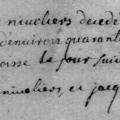 niuoliers decedé
denuiron quarante
oisse le jour suiu
niuoliers et jacq